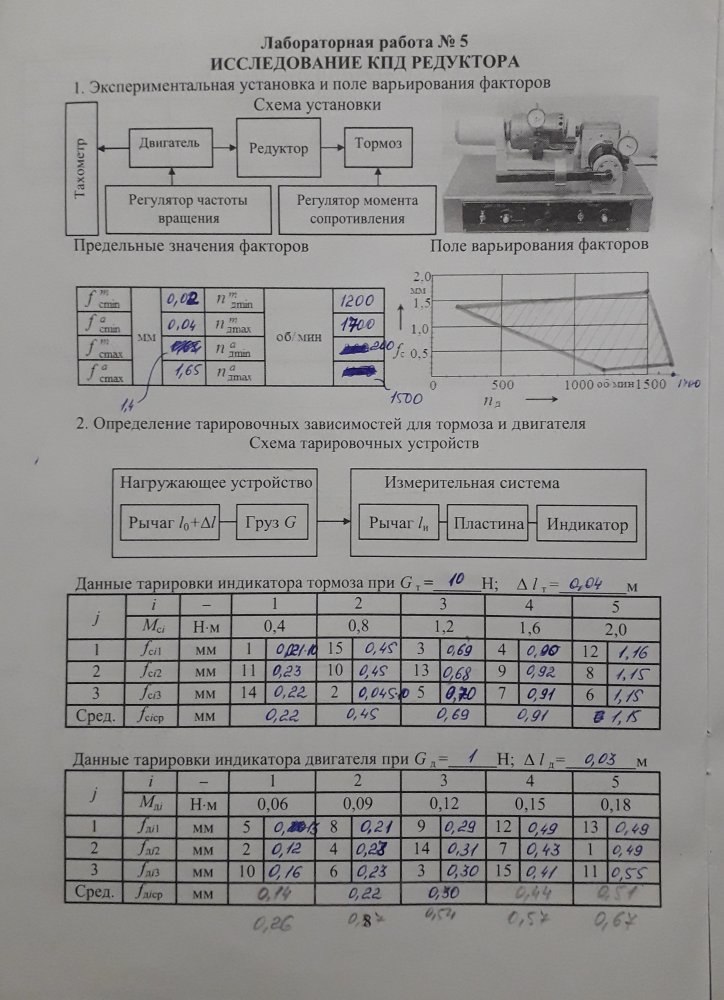 Лабораторная работа № 5
ИССЛЕДОВАНИЕ КПД РЕДУКТОРА
1. Экспериментальная установка и поле варьирования факторов
Схема установки
Тахометр
Двигатель Редуктор Тормоз
Регулятор частоты вращения Регулятор момента сопротивления
Предельные значения факторов Поле варьирования факторов
f^т_cmin мм 0,02 n^т_дmin об/мин 1200
f^а_cmin 0,04 n^т_дmax 1700
f^т_cmax 1,4 n^а_дmin 200
f^а_cmax 1,65 n^а_дmax 1500
2,0
мм
1,5
1,0
f_c
0,5
0 500 1000 об/мин 1500 1700
n_д
2. Определение тарировочных зависимостей для тормоза и двигателя
Схема тарировочных устройств
Нагружающее устройство Измерительная система
Рычаг l₀+Δl Груз G Рычаг l_и Пластина Индикатор
Данные тарировки индикатора тормоза при G_т = 10 Н; Δ l_т = 0,04 м
j i – 1 2 3 4 5
M_ci Н·м 0,4 0,8 1,2 1,6 2,0
1 f_ci1 мм 1 15 0,45 3 0,69 4 0,90 12 1,16
2 f_ci2 мм 11 0,23 10 0,45 13 0,68 9 0,92 8 1,15
3 f_ci3 мм 14 0,22 2 0,045·10 5 0,70 7 0,91 6 1,15
Сред. f_ciср мм 0,22 0,45 0,69 0,91 1,15
Данные тарировки индикатора двигателя при G_д = 1 Н; Δ l_д = 0,03 м
j i – 1 2 3 4 5
M_дi Н·м 0,06 0,09 0,12 0,15 0,18
1 f_дi1 мм 5 8 0,21 9 0,29 12 0,49 13 0,49
2 f_дi2 мм 2 0,12 4 0,23 14 0,31 7 0,43 1 0,49
3 f_дi3 мм 10 0,16 6 0,23 3 0,30 15 0,41 11 0,55
Сред. f_дiср мм 0,14 0,22 0,30 0,44 0,51
0,26 0,54 0,57 0,67